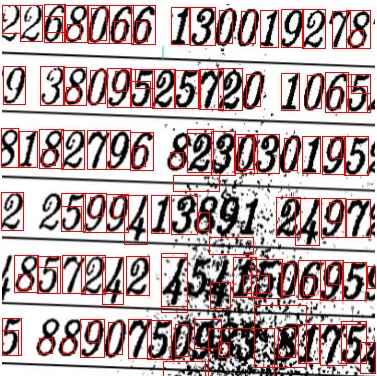 2268066 1300192787
9 3809525720 1065
8182796 8230301952
2 2599413891 2497
857242 4541506959
5 8890750963 8175